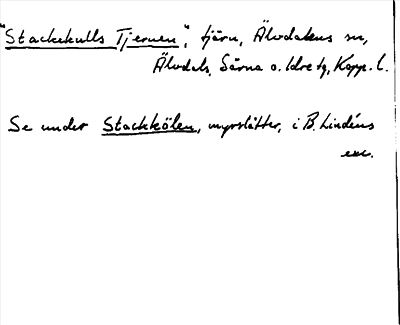 "Stackekulls Tjernen", tjärn, Älvdalens sn,
Älvdals, Särna o. Idre tg, Kopp. l.
Se under Stackkölen, myrslåtter, i B. Lindéns
exc.